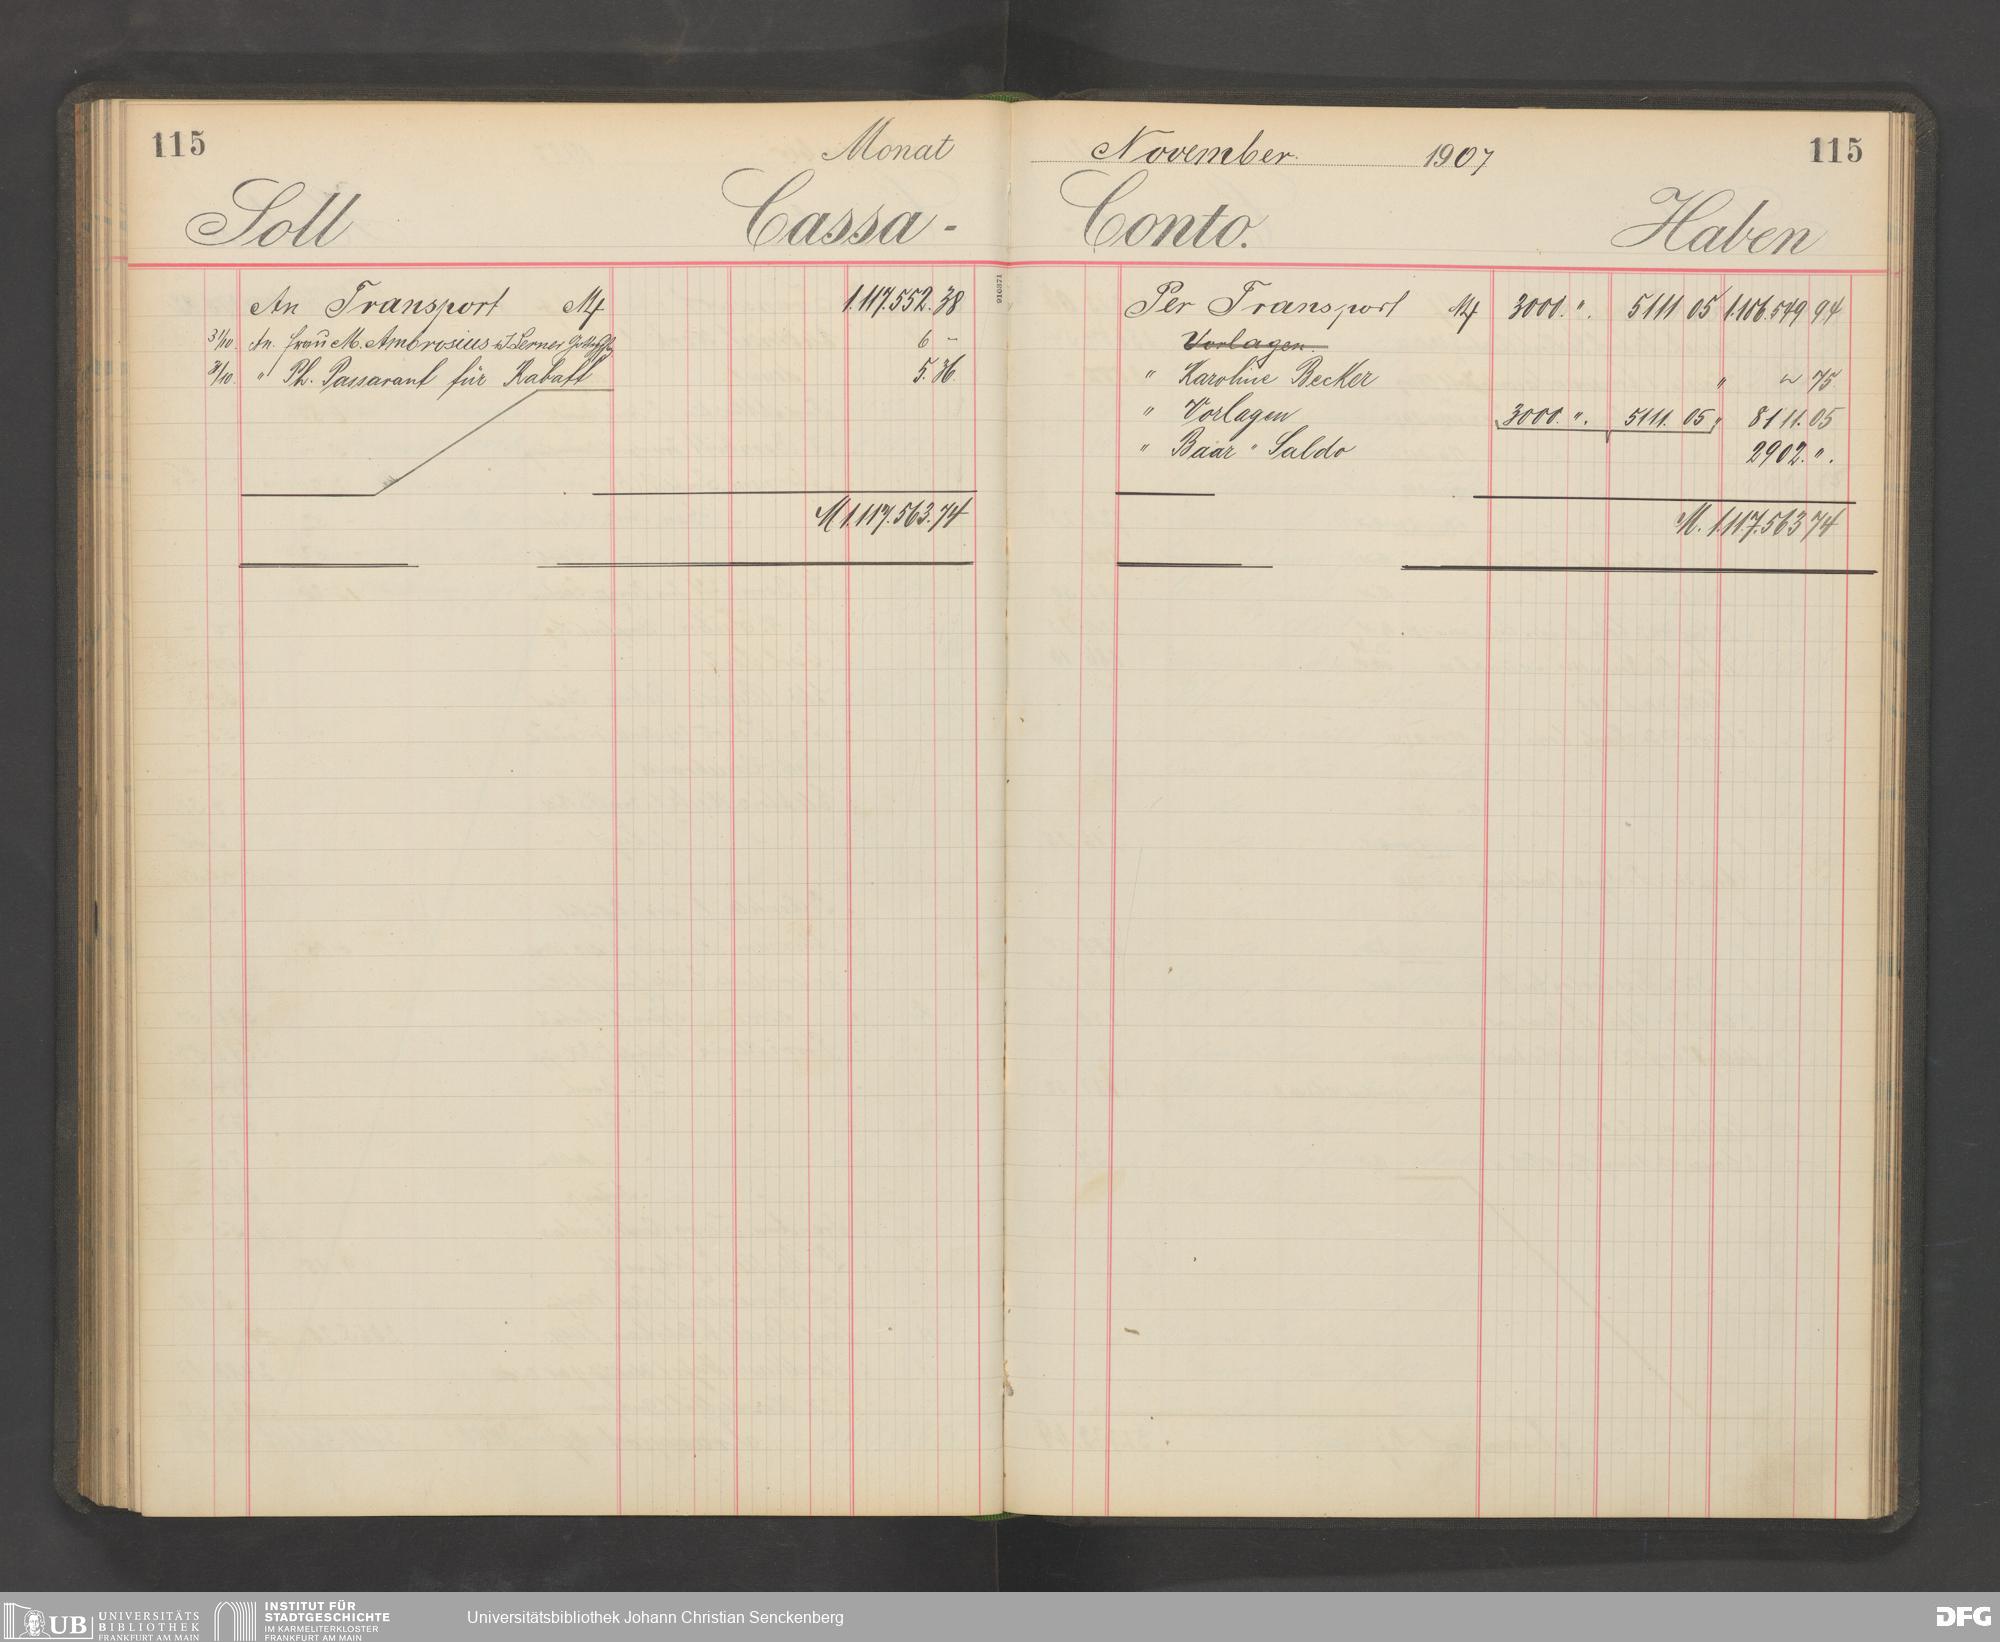 115
Monat
Soll Cassa -
An Transport M 1.117.552.38
31/10. An. Frau M. Ambrosius 6 -
31/10. " Ph. Passavant für Rabatt 5.36.
M 1.117.563.74
910871
November. 1907 115
Conto. Haben
Per Transport M 3000. ". 5111 05 1.106.549 94
Vorlagen.
" Karoline Becker " ~ 75
" Vorlagen 3000. ". 5111. 05 " 8111.05
" Baar " Saldo 2902. ".
M. 1.117.563 74
UB UNIVERSITÄTS
BIBLIOTHEK
FRANKFURT AM MAIN
INSTITUT FÜR
STADTGESCHICHTE
IM KARMELITERKLOSTER
FRANKFURT AM MAIN
Universitätsbibliothek Johann Christian Senckenberg
DFG